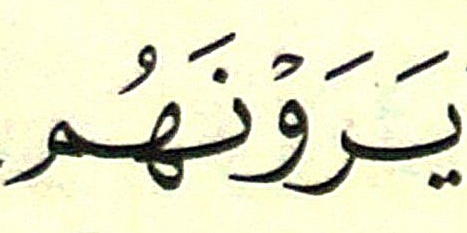 يَرَوْنَهُم